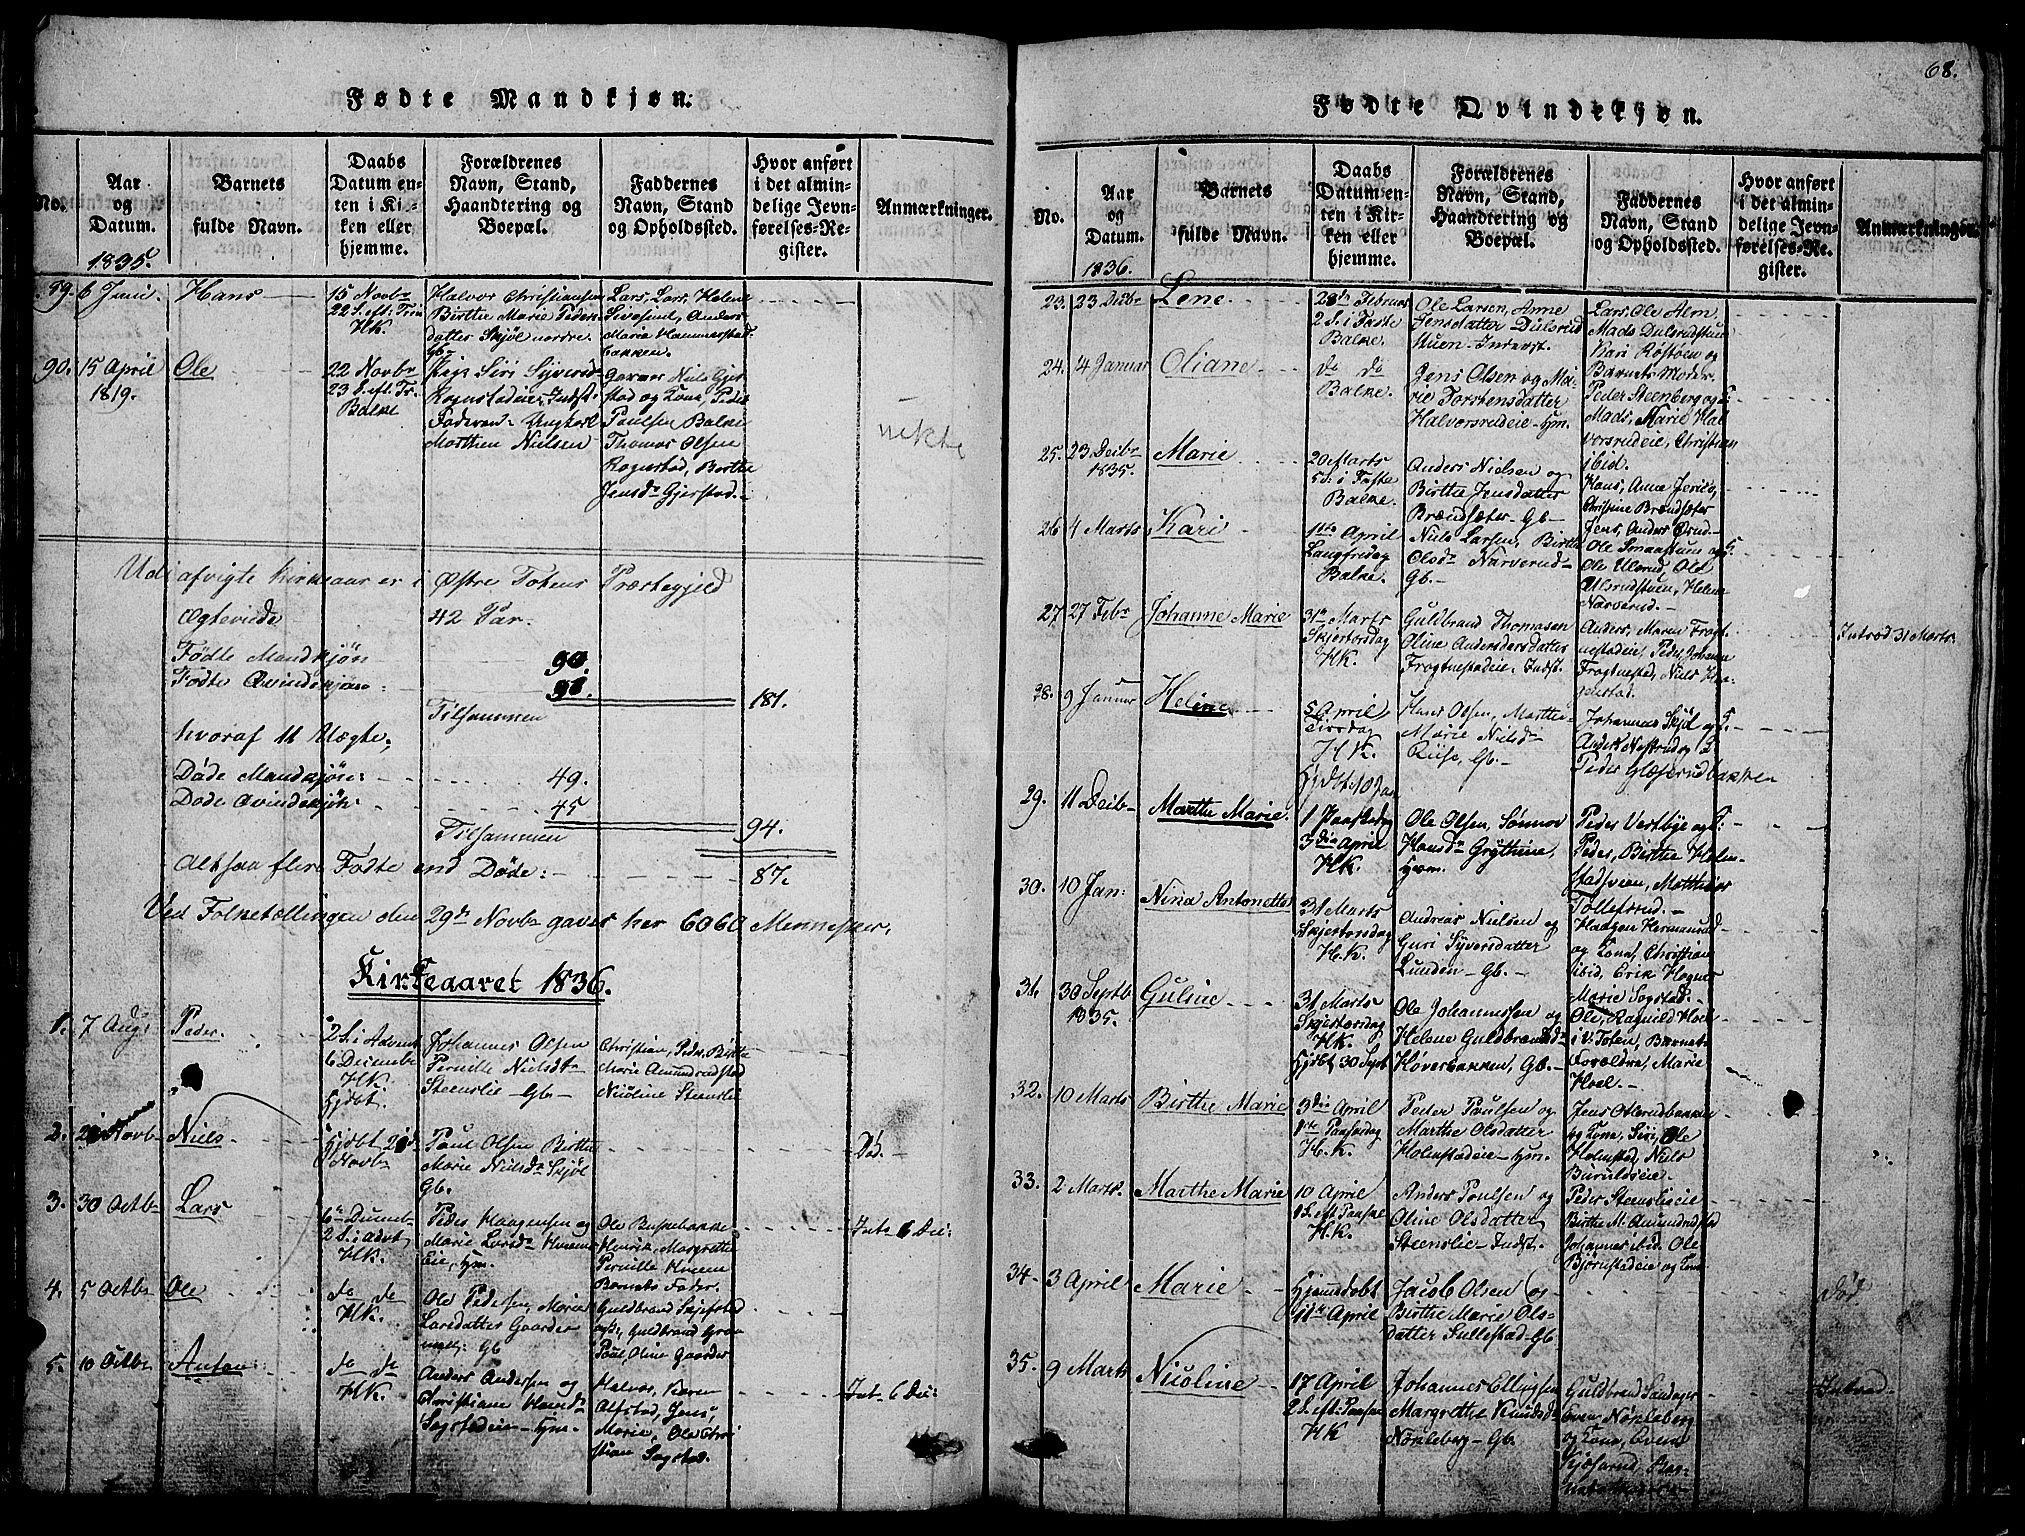 68.
Fødte Mandkjøn.
No.
Aar
og
Datum.
1835.
Barnets
fulde Navn.
Daabs
Datum en-
ten i Kir-
ken eller
hjemme.
Forældrenes
Navn, Stand,
Haandtering og
Boepæl.
Faddernes
Navn, Stand
og Opholdssted.
Hvor anført
i det almin-
delige Jevn-
førelses-Re-
gister.
Anmærkninger.
89. 6 Juni.
Hans
15 Novbr
22 S. eft. Trin
HK.
Halvor Christiansen
Birthe Marie Peders
datter Skjøl nordre.
Gb-
Lars, Lars, Helene
Marie Hammerstad
bakken.
90. 15 April
1819.
Ole
22 Novbr
23 S. eft. Tr.
Balke
Pige Siri Syverid
Rognstadeie, Indst.
Faderen: Ungkarl
Morthen Nielsen
Gaarmr Niels Gjer
stad og Kona, Peder
Paulsen Balke
Thomas Olsen
Rognstad, Birthe
Jensdr Gjerstad.-
nekte
Udi afvigte Kirkeaar er i Østre Totens Præstegjeld
Ægteviede 42 Par.
Fødte Mandkjøn 90.
Fødte Qvindekjøn: 91.
Tilsammen 181.
hvoraf 11 Uægte,
Døde Mandkjøn: 49.
Døde Qvindekjøn: 45
Tilsammen 94.
Altsaa flere Fødte end Døde: 87.
Ved Folketællingen den 29de Novbr gaves her 6060 Mennesker.
Kirkeaaret 1836.
1. 7 Aug:
Peder.
2 S. i Advent
6 Decembr
HK.
Hjdbt.
Johannes Olsen
Pernille Nielsdr
Steenslie-Gb-
Christian, Peder, Birthe
Marie Amundrudstad
Nicoline Steenslie
2. 28 Novb-
Niels
Hjdbt 28de
Novbr
Paul Olsen Birthe
Marie Nielsdr Skjøl
Gb.
Død.-
3. 30 Octbr
Lars
6te Decemb
2 S. i Advt
HK.
Peder Haagensen og
Marie Larsdr Hveem
Eie, Hm.
Ole Buskebakke
Henrik, Margrethe
Pernille Hveem
Barnets Fader.
Int 6 De:
4. 5 Octbr
Ole
do do
HK.
Ole Pedersen, Marie
Larsdatter Gaarder
Gb
Guldbrand Skjefstad
Guldbrand
Paul, Oline Gaarder
5. 10 Octbr
Anton:
do do
HK.
Anders Andersen og
Christiane Hansdr
Sogstadeie-Hm.
Halvor, Karen
Alfstad, Jens,
Marie, Ole Chri
stian Sogstad.
Int 6 De:
Fødte Qvindekjøn.
No.
Aar
og
Datum.
1836.
Barnets
fulde Navn.
Daabs
Datum en-
ten i Kir-
ken eller
hjemme.
Forældrenes
Navn, Stand,
Haandtering og
Boepæl.
Faddernes
Navn, Stand
og Opholdssted.
Hvor anført
i det almin-
delige Jevn-
førelses-Re-
gister.
Anmærkninger.
23. 23 Decbr
Lene
28de Februar
2 S. i Faste
Balke.
Ole Larsen, Anne
Jensdatter Dulsrud
stuen-Inderst.
Lars, Ole Alm
Mads Dulsrudstuen
Kari Røstøen og
Barnets Moder.
24. 4 Januar
Oliane
do do
Balke.
Jens Olsen og Ma-
rie Torstensdatter
Halvorsrudeie-Hm.
Peder Steenberg og
Mads, Marie Hal
vorsrudeie, Christian
ibid.
25. 23 Decbr
1835.
Marie
20 Marts
5 S. i Faste
Balke.
Anders Nielsen og
Birthe Jensdatter
Brendsæter-Gb-
Hans, Anne
Christine Brendsæter
Jens, Anders
26 4 Marts
Kari
1ste April
Langfredag
Balke.
Niels Larsen, Birthe
Olsdr Narverud-
Gb.-
Ole Smaastuen og
Ole Ulsrud, Ole
Ulsrudstuen, Helene
Narverud.-
27 27 Febr
Johanne Marie
31te Marts
Skjertorsdag
HK.
Guldbrand Thomasen
Oline Andersdatter
Frogtnestadeie-Indst.
Anders, Maren Frogt-
nestadeie, Peder, Johanne
Frogtnestad, Niels
Introd 31 Marts
28. 9 Januar
Heline
5 April
HK.
Hans Olsen, Marthe
Marie Nielsdr
Riise, Gb.-
Johannes Skjøl og
Anders Nøstrud og
Peder Glæserudbakken
29. 11 Decbr
Marthe Marie.
Hjdbt 10 Jan
1 Paaskedag
3die April
HK.
Ole Olsen, Sønnov
Hansdr Grythene,
Hm.
Peder Vestbye og
Peder, Birthe Holm-
stadsveen, Matthias
Tollefsrud.-
30. 10 Jan:
Nina Antonette
31 Marts
Skjertorsdag
H.K.
Andreas Nielsen og
Guri Syversdatter
Lunden-Gb.-
Haagen Hermansrud
og Kona, Christian
ibid, Erik
Marie Sogstad.-
31. 30 Septb
1835.
Guline
31 Marts
Skjertorsdag
Hjdbt 30 Sept
Ole Johannessen og
Helene Guldbrandsdr
Høverbakken, Gb.-
Ole, Ragnild Hoel
i V. Toten, Barnets
Forældre, Marie
Hoel.-
32. 10 Marts
Birthe Marie
3die April
1ste Paaskedag
H.K.
Peder Paulsen og
Marthe Olsdatter
Holmstadeie-Hm.
og Kona, Siri, Ole
Holmstad, Niels
33. 2 Marts.
Marthe Marie
10 April
1 S. eft Paaske
H.K.
Anders Poulsen og
Oline Olsdatter
Steenslie-Indst.
Peder Steenslieeie
Birthe M. Amundrudstad
Johannes ibid. Ole
Bjørnstadeie og Kona
34- 3 April
Marie
Hjemdøbt
April
Jacob Olsen og
Birthe Marie Ols-
datter Sullestad-Gb.
Død.
35. 9 Marts
Nicoline
17 April
2 S. eft. Paaske
HK
Johannes Ellingsen
Margrethe Knudsdr
Nøkleberg-Gb.
Guldbrand
Even Nøkleberg
og Kona, Even
Introd-